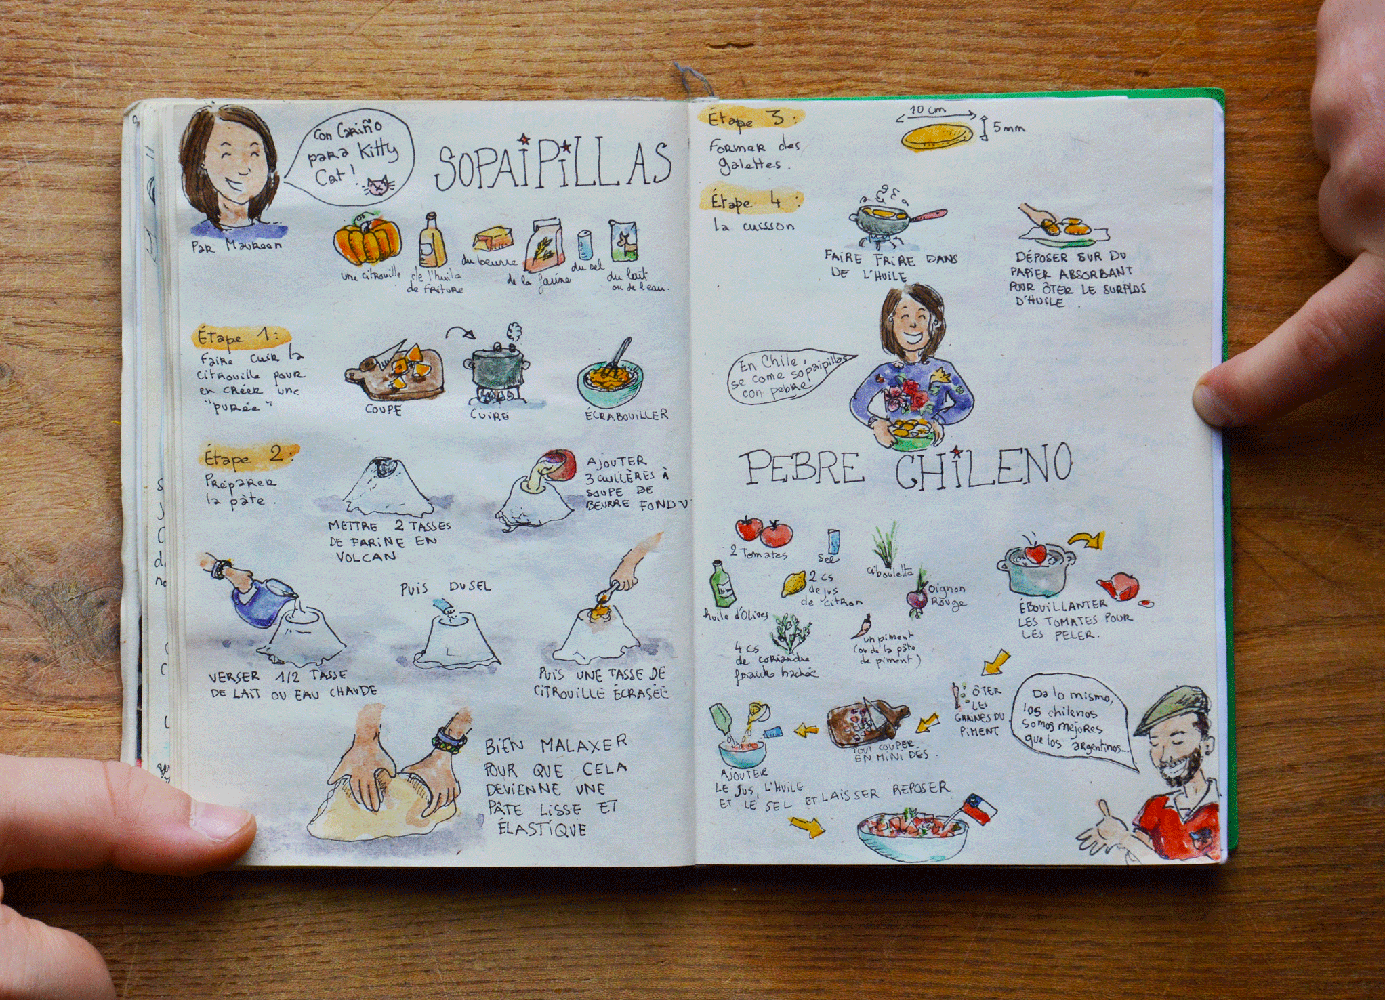 Con Cariño
para Kitty
Cat!
SOPAIPILLAS
Par Maureen
une citrouille
de l'huile
de friture
du beurre
de la farine
du sel
du lait
ou de l'eau.
Étape 1:
Faire cuir la
citrouille pour
en créer une
"purée"
COUPE
CUIRE
ÉCRABOUILLER
Étape 2:
Préparer
la pâte.
METTRE 2 TASSES
DE FARINE EN
VOLCAN
AJOUTER
3 CUILLÈRES À
SOUPE DE
BEURRE FONDU
VERSER 1/2 TASSE
DE LAIT OU EAU CHAUDE
PUIS DU SEL
PUIS UNE TASSE DE
CITROUILLE ÉCRASÉE
BIEN MALAXER
POUR QUE CELA
DEVIENNE UNE
PÂTE LISSE ET
ÉLASTIQUE
Étape 3:
Former des
galettes.
10 cm
5 mm
Étape 4:
la cuisson
FAIRE FRIRE DANS
DE L'HUILE
DÉPOSER SUR DU
PAPIER ABSORBANT
POUR ÔTER LE SURPLUS
D'HUILE.
En Chile,
se come sopaipillas
con pebre!
PEBRE CHILENO
2 Tomates
Sel
Ciboulette
huile d'Olives
2 cs
de jus
de citron
Oignon
Rouge
4 cs
de coriandre
fraîche hachée
un piment
(ou de la pâte
de piment)
ÉBOUILLANTER
LES TOMATES POUR
LES PELER.
ÔTER
LES
GRAINES DU
PIMENT
TOUT COUPER
EN MINI DÉS.
AJOUTER
LE JUS, L'HUILE
ET LE SEL ET LAISSER REPOSER
Da lo mismo,
los chilenos
somos mejores
que los argentinos...